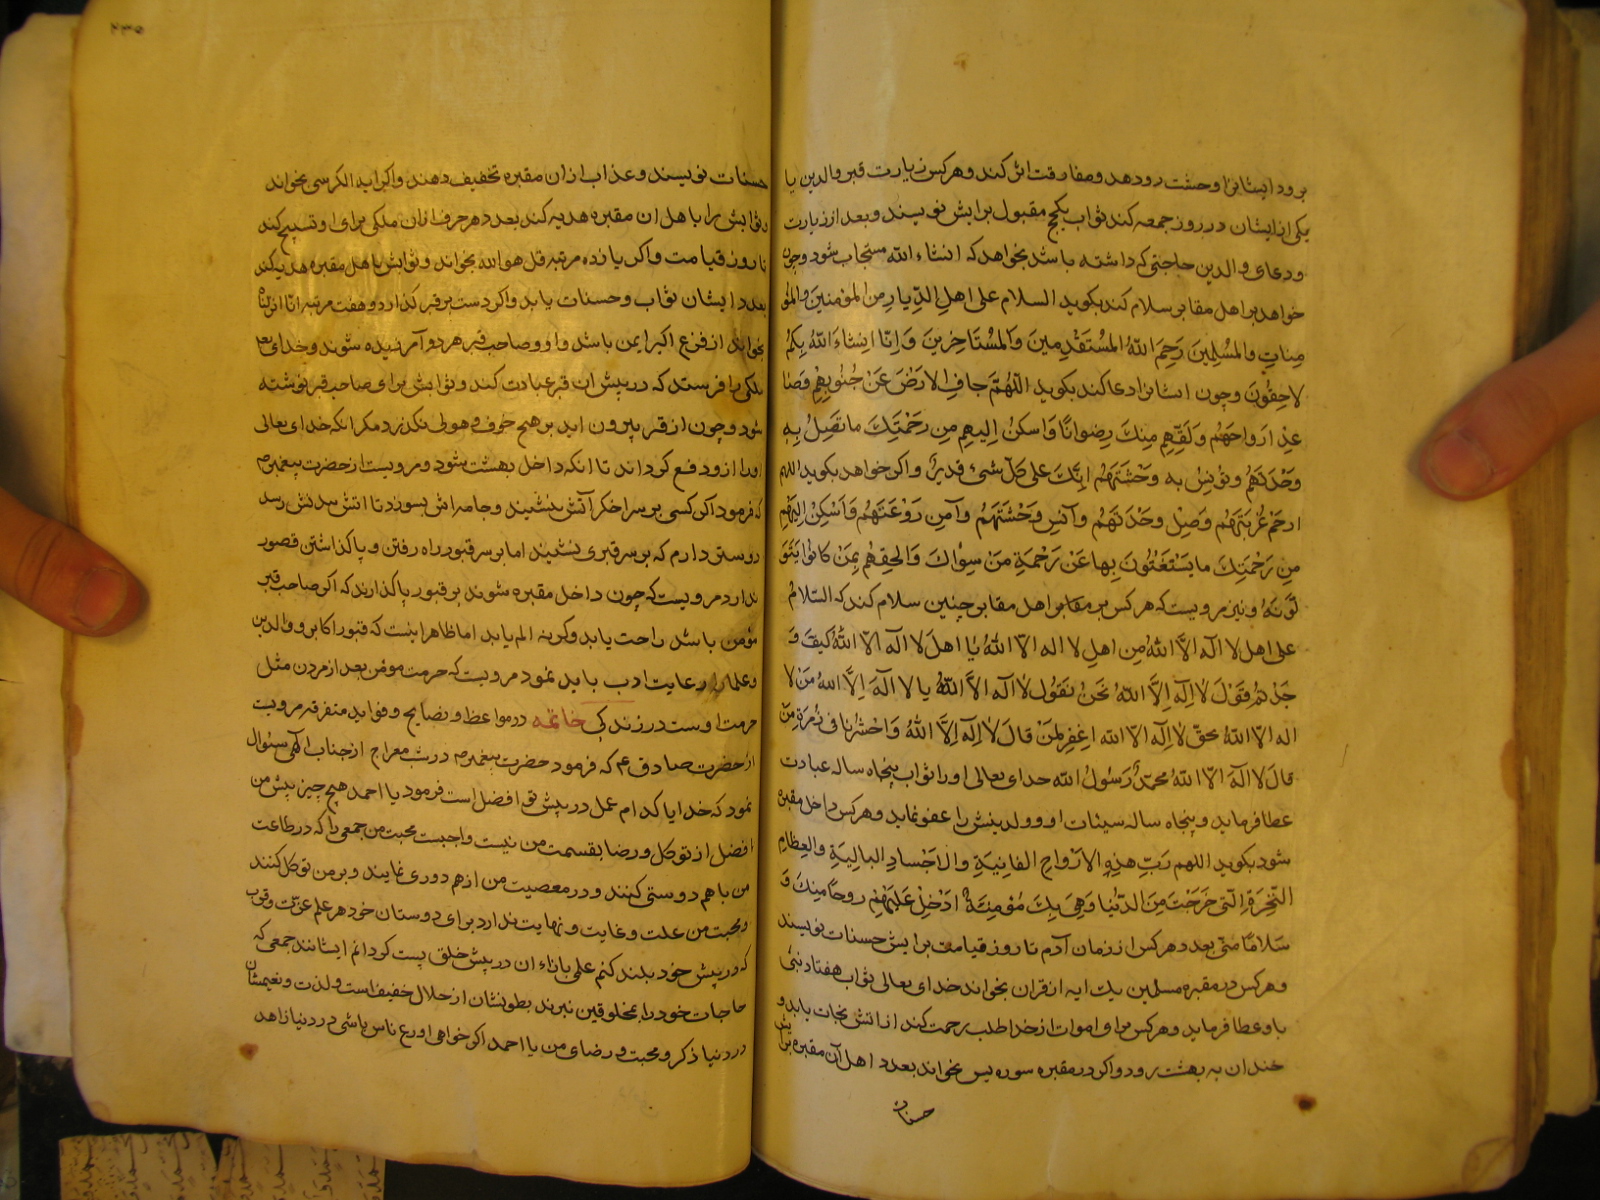 برود ایشانرا وحشت رو دهد و مفارقت اثر کند و هر کس زیارت قبر والدین یا
یکی از ایشان در روز جمعه کند ثواب یکحج مقبول برایش نویسند و بعد از زیارت
و دعای والدین حاجتی که داشته باشد بخواهد که انشاء الله مستجاب شود و چون
خواهد بر اهل مقابر سلام کند بکوید السلام علی اهل الدیار من المؤمنین والمؤ
منات والمسلمین رحم الله المستقدمین والمستاخرین وانا انشاء الله بکم
لاحقون و چون ایشانرا دعا کند بکوید اللهم جاف الارض عن جنوبهم وصا
عد ارواحهم ولقهم منک رضوانا واسکن الیهم من رحمتک ما تصل به
وحدتهم وتونس به وحشتهم انک علی کل شیء قدیر و اکر خواهد بکوید اللهم
ارحم غربتهم وصل وحدتهم وآنس وحشتهم وآمن روعتهم واسکن الیهم
من رحمتک ما یستغنون بها عن رحمة من سواک والحقهم بمن کانوا یتو
لونه و نیز مرویست که هر کس بر مقابر اهل مقابر چنین سلام کند که السلام
علی اهل لا اله الا الله من اهل لا اله الا الله یا اهل لا اله الا الله کیف و
جدتم قول لا اله الا الله نحن نقول لا اله الا الله یا لا اله الا الله من لا
اله الا الله بحق لا اله الا الله اغفر لمن قال لا اله الا الله واحشرنا فی زمرة من
قال لا اله الا الله محمد رسول الله خدای تعالی او را ثواب پنجاه ساله عبادت
عطا فرماید و پنجاه ساله سیئات او و والدینش را عفو نماید و هر کس داخل مقبره
شود بکوید اللهم رب هذه الارواح الفانیة والاجساد البالیة والعظام
النخرة التی خرجت من الدنیا وهی بک مؤمنة ادخل علیهم روحا منک و
سلاما منی بعدد هر کس از زمان آدم تا روز قیامت برایش حسنات نویسند
و هر کس در مقبره مسلمین یک ایه از قران بخواند خدای تعالی ثواب هفتاد نبی
باو عطا فرماید و هر کس برای اموات از خدا طلب رحمت کند از اتش نجات یابد و
خندان به بهشت رود و اکر در مقبره سوره یس بخواند بعدد اهل آن مقبره برایش
حسنات
۲۳۵
حسنات نویسند و عذاب از ان مقبره تخفیف دهند و اکر ایه الکرسی بخواند
و ثوابش را باهل ان مقبره هدیه کند بعدد هر حرف از ان ملکی برای او تسبیح کند
تا روز قیامت و اکر یازده مرتبه قل هو الله بخواند و ثوابش باهل مقبره هدیه کند
بعدد ایشان ثواب و حسنات یابد و اکر دست بر قبر کذارد و هفت مرتبه انا انزلناه
بخواند از فزع اکبر ایمن باشد و او و صاحب قبر هر دو آمرزیده شوند و خدای تعا
ملکی را فرستد که در پیش ان قبر عبادت کند و ثوابش برای صاحب قبر نوشته
شود و چون از قبر بیرون اید بر هیچ خوف و هولی نکذرد مکر انکه خدای تعالی
اورا از و دفع کرداند تا انکه داخل بهشت شود و مرویست از حضرت پیغمبر ص
که فرمود اکر کسی بر سر اخکر آتش بنشیند و جامه اش بسوزد تا اتش ببدنش رسد
دوستر دارم که بر سر قبری نشیند اما بر سر قبور راه رفتن و پا کذاشتن قصور
ندارد مرویست که چون داخل مقبره شوند بر قبور پا کذارند که اکر صاحب قبر
مؤمن باشد راحت یابد و کرنه الم یابد اما ظاهر اینست که قبور اکابر و والدین
و علما را رعایت ادب باید نمود مرویست که حرمت مومن بعد از مردن مثل
حرمت اوست در زندکی خاتمه در مواعظ و نصایح و فواید متفرقه مرویست
از حضرت صادق ع م که فرمود حضرت پیغمبر ص در شب معراج از جناب الهی سئوال
نمود که خدایا کدام عمل در پیش تو افضل است فرمود یا احمد هیچ چیز پیش من
افضل از توکل و رضا بقسمت من نیست واجبست محبت من جمعی را که در طاعت
من با هم دوستی کنند و در معصیت من از هم دوری نمایند و بر من توکل کنند
و محبت من علت و غایت و نهایت ندارد برای دوستان خود هر علم عزت و قرب
که در پیش خود بلند کنم علمی بازاء ان در پیش خلق پست کردانم ایشانند جمعی که
حاجات خود را بمخلوقین نبرند بطونشان از حلال خفیف است و لذت و نعیمشان
در دنیا ذکر و محبت و رضای من یا احمد اکر خواهی اورع ناس باشی در دنیا زاهد